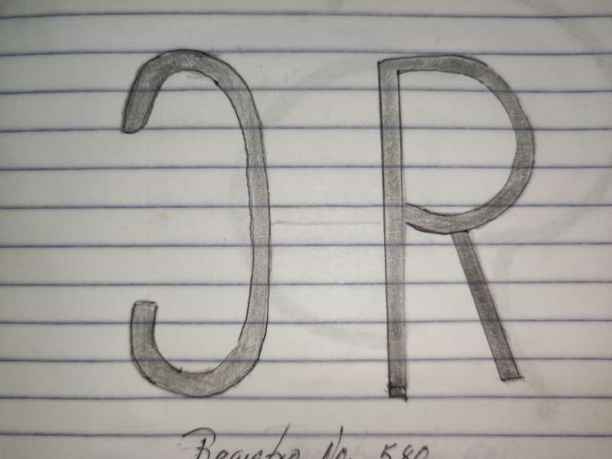 Ɔ R
Registro No. 580